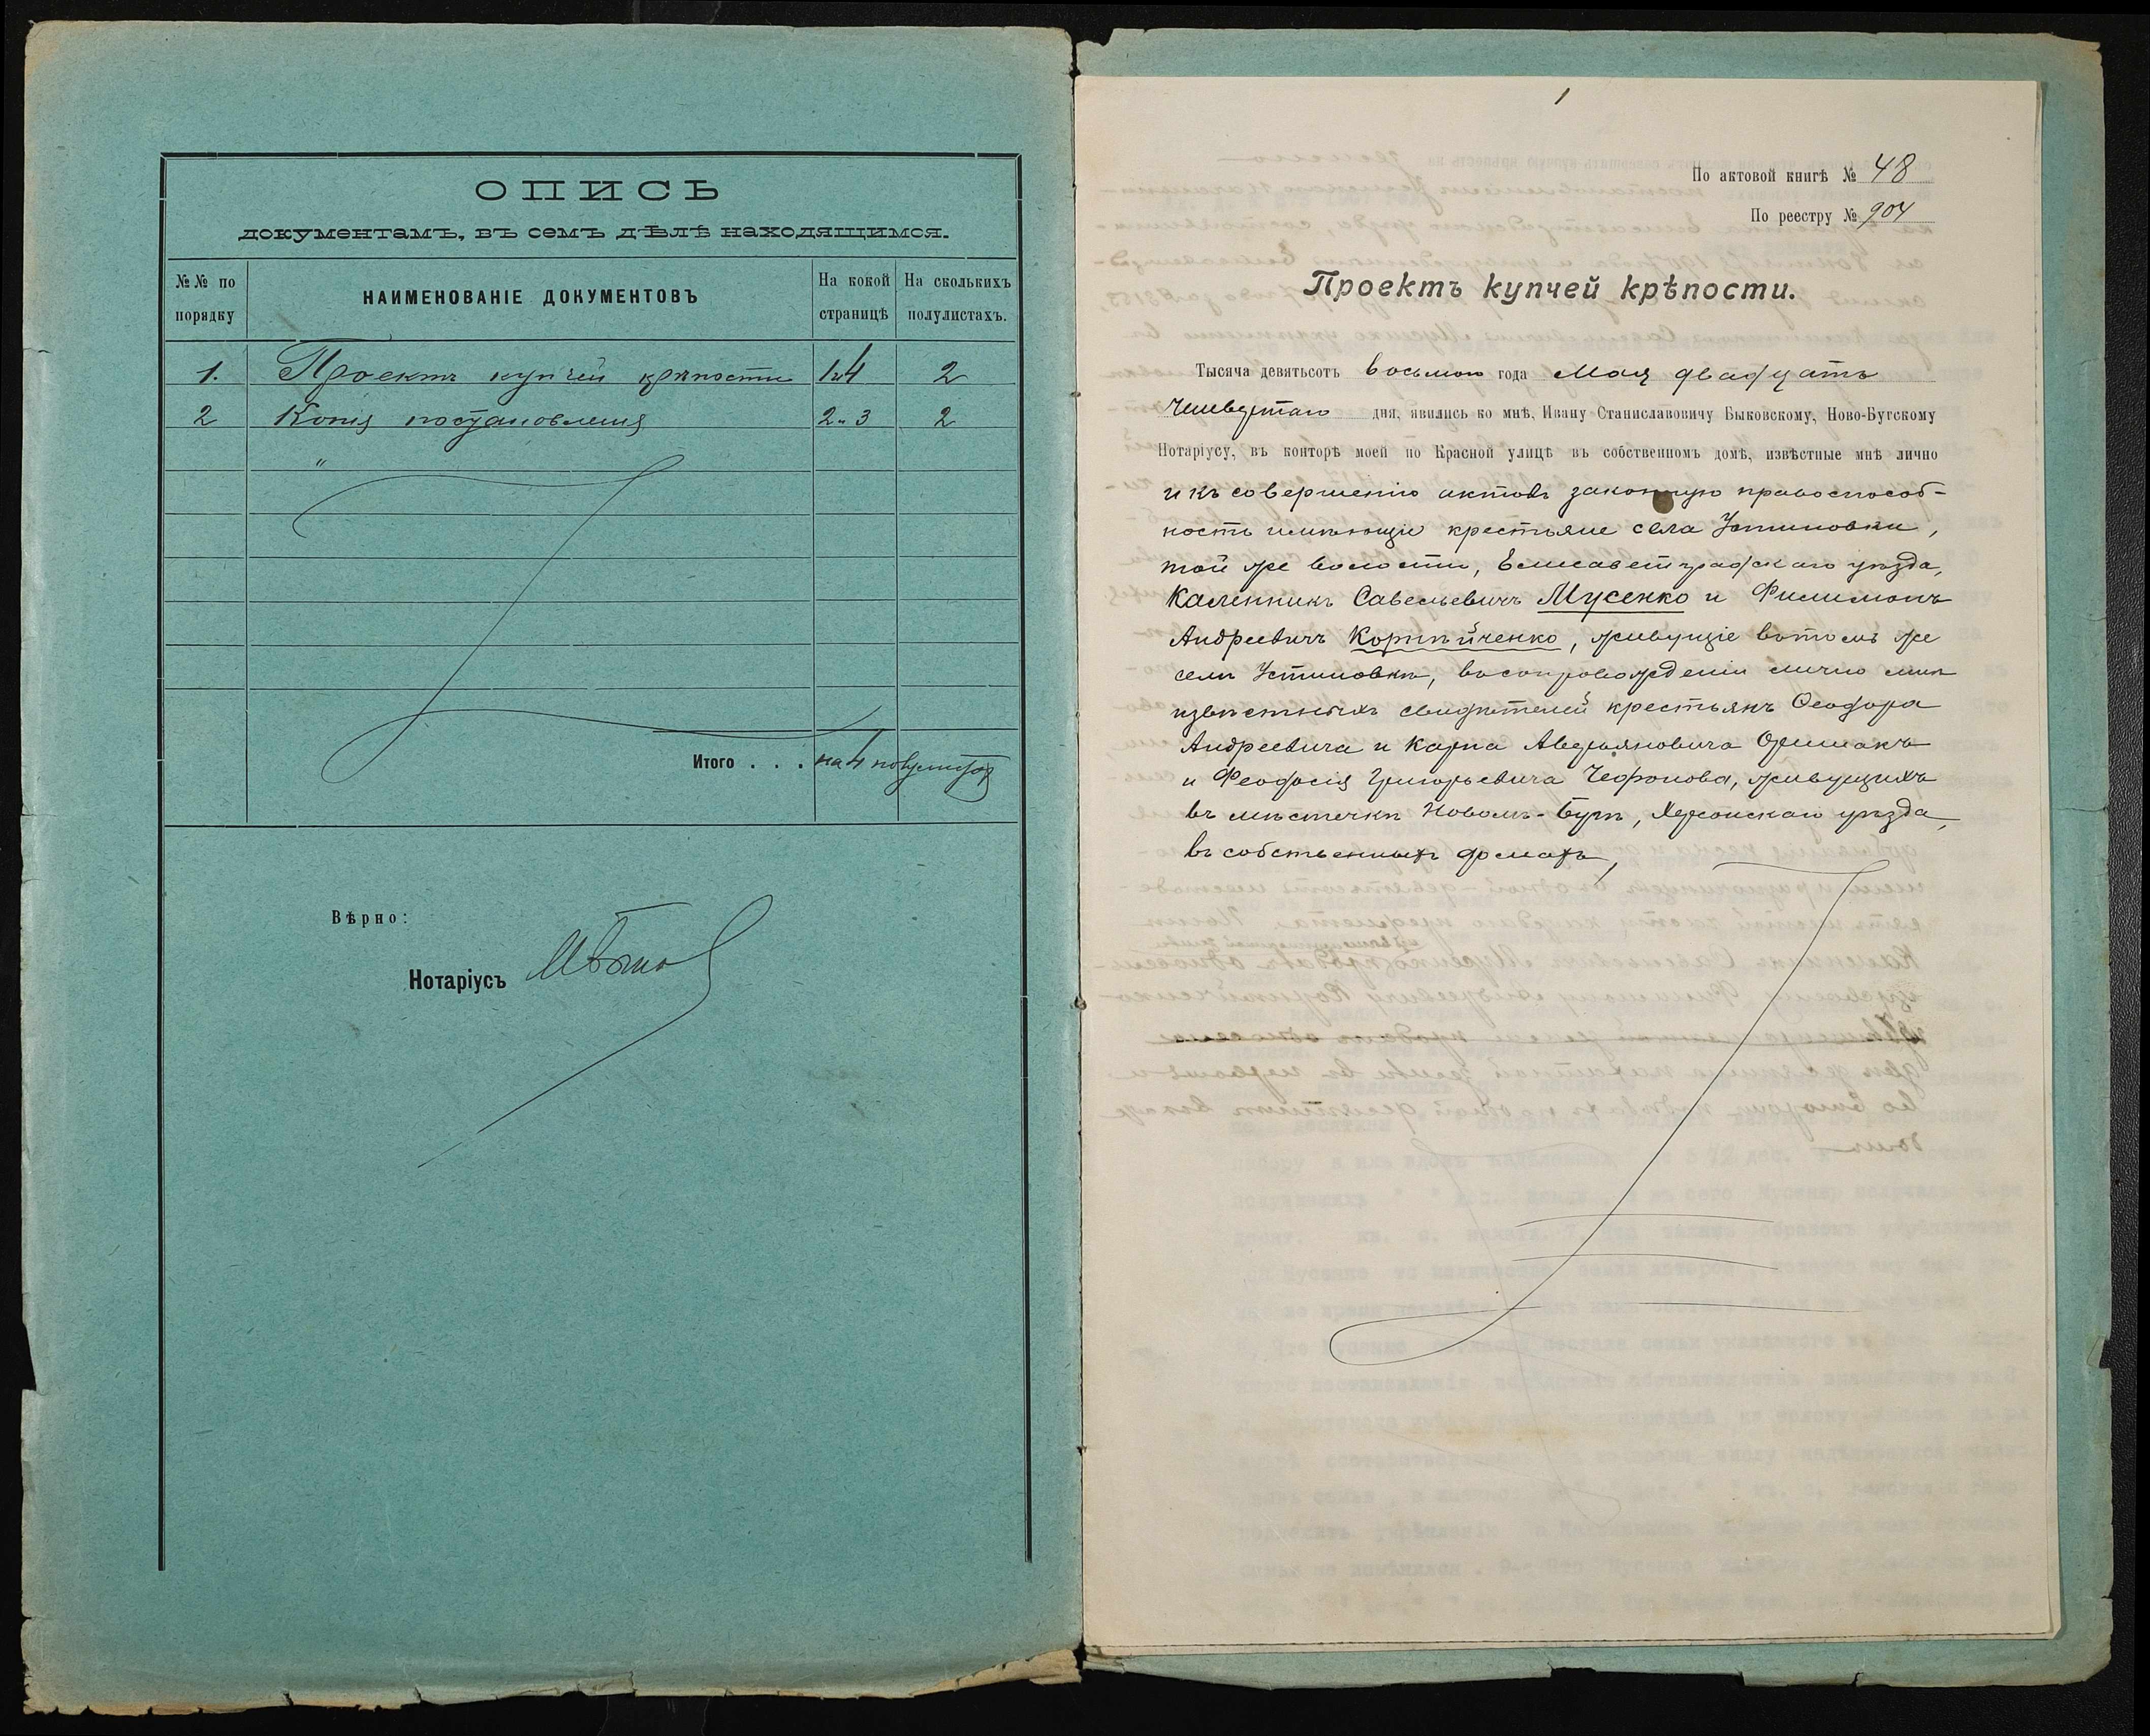 ОПИСЬ
документамъ, въ семъ дѣлѣ находящимся.
№№ по порядку
НАИМЕНОВАНІЕ ДОКУМЕНТОВЪ
На кокой страницѣ
На сколькихъ полулистахъ.
1. Проектъ купчей крѣпости 1 и 4 2
2 Копія постановленія 2 и 3 2
"
Итого . . . на 4 полулистахъ
Вѣрно:
Нотаріусъ
1
По актовой книгѣ № 48
По реестру № 904
Проектъ купчей крѣпости.
Тысяча девятьсотъ восьмого года Мая двадцать
четвертаго дня, явились ко мнѣ, Ивану Станиславовичу Быковскому, Ново-Бугскому
Нотаріусу, въ конторѣ моей по Красной улицѣ въ собственномъ домѣ, извѣстные мнѣ лично
и къ совершенію актовъ законную правоспособ-
ность имѣющіе крестьяне села Устиновки,
той же волости, Елисаветградскаго уѣзда,
Каленникъ Савельевичъ Мусенко и Филимонъ
Андреевичъ Корнѣйченко, живущіе въ томъ же
селѣ Устиновкѣ, въ сопровожденіи лично мнѣ
извѣстныхъ свидѣтелей крестьянъ Ѳеодора
Андреевича и Карпа Аверьяновича
и Феодосія Григорьевича живущихъ
въ мѣстечкѣ Новомъ-Бугѣ, Херсонскаго уѣзда,
въ собственныхъ домахъ,